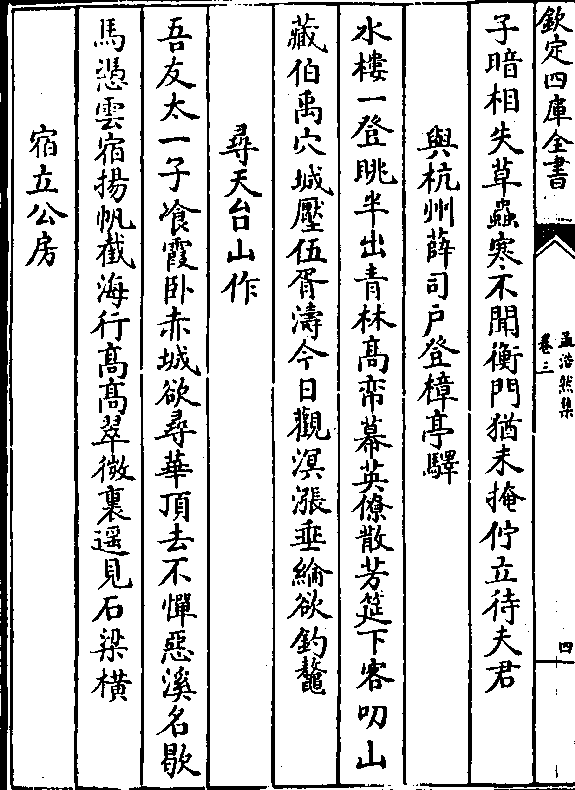 欽定四庫全書
孟浩然集
卷三
四
子暗相失草蟲寒不聞衡門猶未掩佇立待夫君
與杭州薛司戶登樟亭驛
水樓一登眺半出青林髙帟幕英僚散芳筵下客叨山
藏伯禹穴城壓伍胥濤今日觀溟漲垂綸欲釣鼇
尋天台山作
吾友太一子飡霞卧赤城欲尋華頂去不憚惡溪名歇
馬憑雲宿揚帆截海行髙髙翠微裏遥見石梁橫
宿立公房